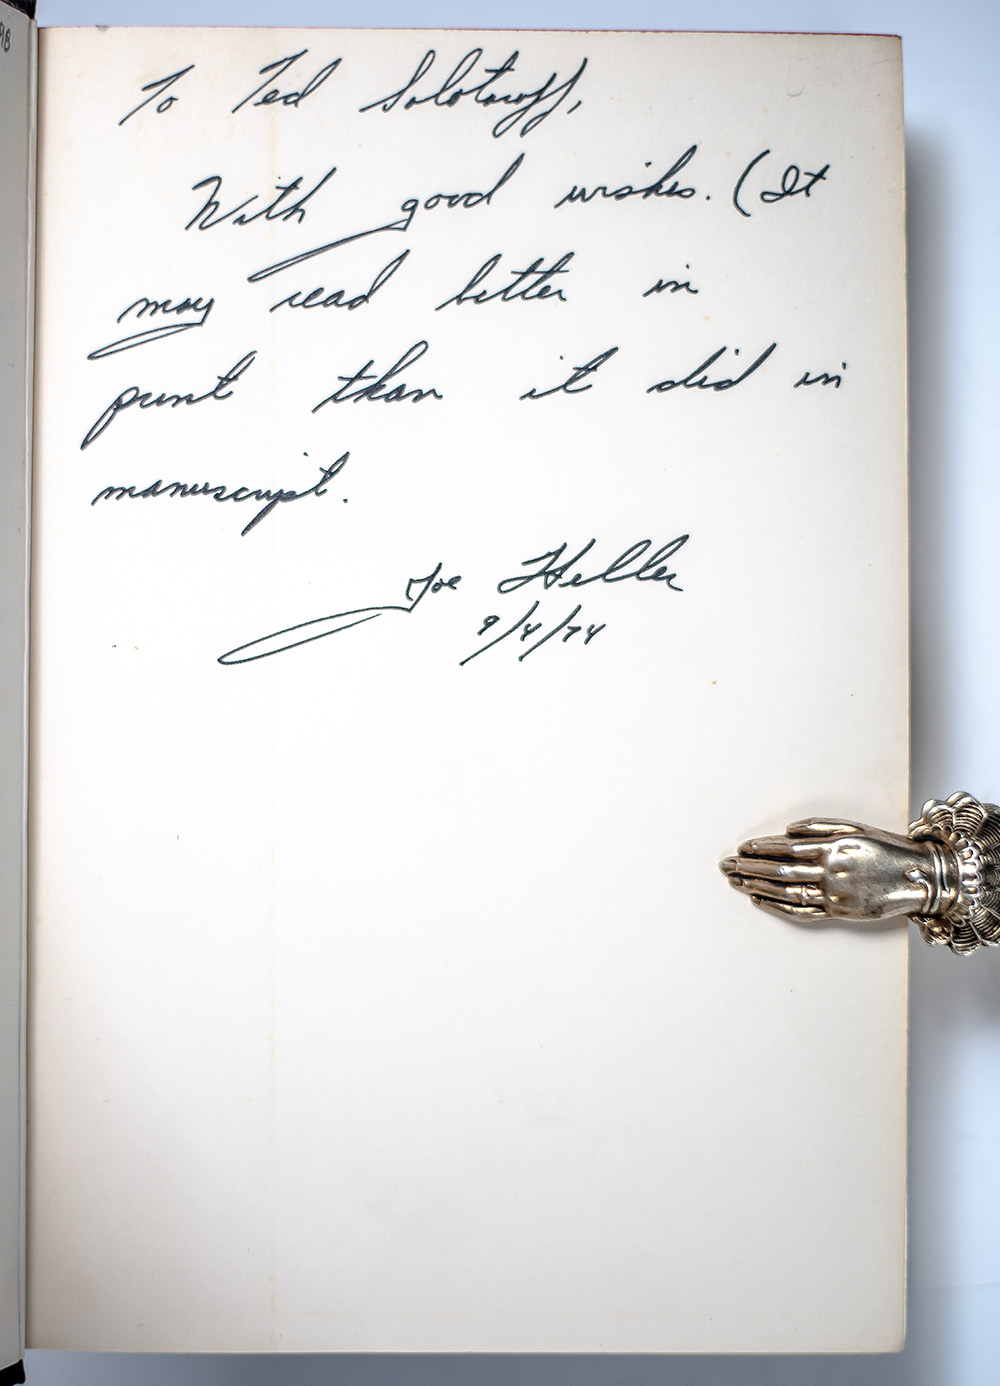 To Ted Solotaroff,
With good wishes. (It
may read better in
print than it did in
manuscript.
Joe Heller
9/4/74